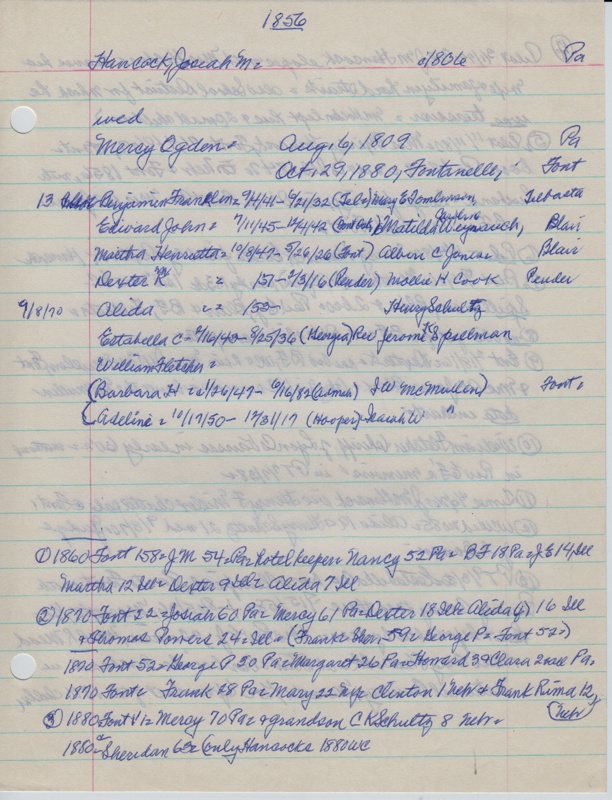 1856
Hancock, Josiah M= c/1806 Pa
wed
Mercy Ogden= Aug, 6, 1809 Pa
Oct, 29, 1880, Fontanelle, Font
13 Benjamin Franklin= 9/4/41- 9/21/32 (Tek) Mary E Tomlinson, Tekasta
Edward John= 7/11/45- 12/4/42 Matilda Weyrauch, Blair
Martha Henrietta= 10/8/47- 5/26/26 (Font) Albin C Jones Blair
Dexter R= = 1851- 2/3/16 (Pender) Mollie H Cook Pender
9/8/70 Alida = = 1853- Henry Schultz
Estabella C- 9/16/43- 8/25/36 (Georgia) Rev Jerome K Spielman
William Fletcher=
(Barbara H= 1/26/47- 6/16/82 (Admer) I W McMullen) Font=
(Adeline= 10/17/50- 12/31/17 (Hooper)= Isaiah W "
① 1860 Font 158= J.M. 54= Pa= hotel keeper= Nancy 52 Pa= BF 18 Pa= J E 14, Ill
Martha 12 Ill= Dexter 9 Ill= Alida 7 Ill
② 1870 Font 22= Josiah 60 Pa= Mercy 61 Pa= Dexter 18 Ill= Alida 16 Ill
& Thomas Powers 24= Ill= (Frank= 59= George P= Font 52=)
1870 Font 52= George P 20 Pa= Margaret 26 Pa= Howard 3 Clara 2 Pa=
1870 Font= Frank 28 Pa= Mary 22 Clinton 1 Neb= & Frank Rima 12,
(Neb)
③ 1880 Font 41= Mercy 70 Pa= & grandson C K Schultz 8 Neb=
1880= Sheridan 62= (only Hancocks 1880 WC